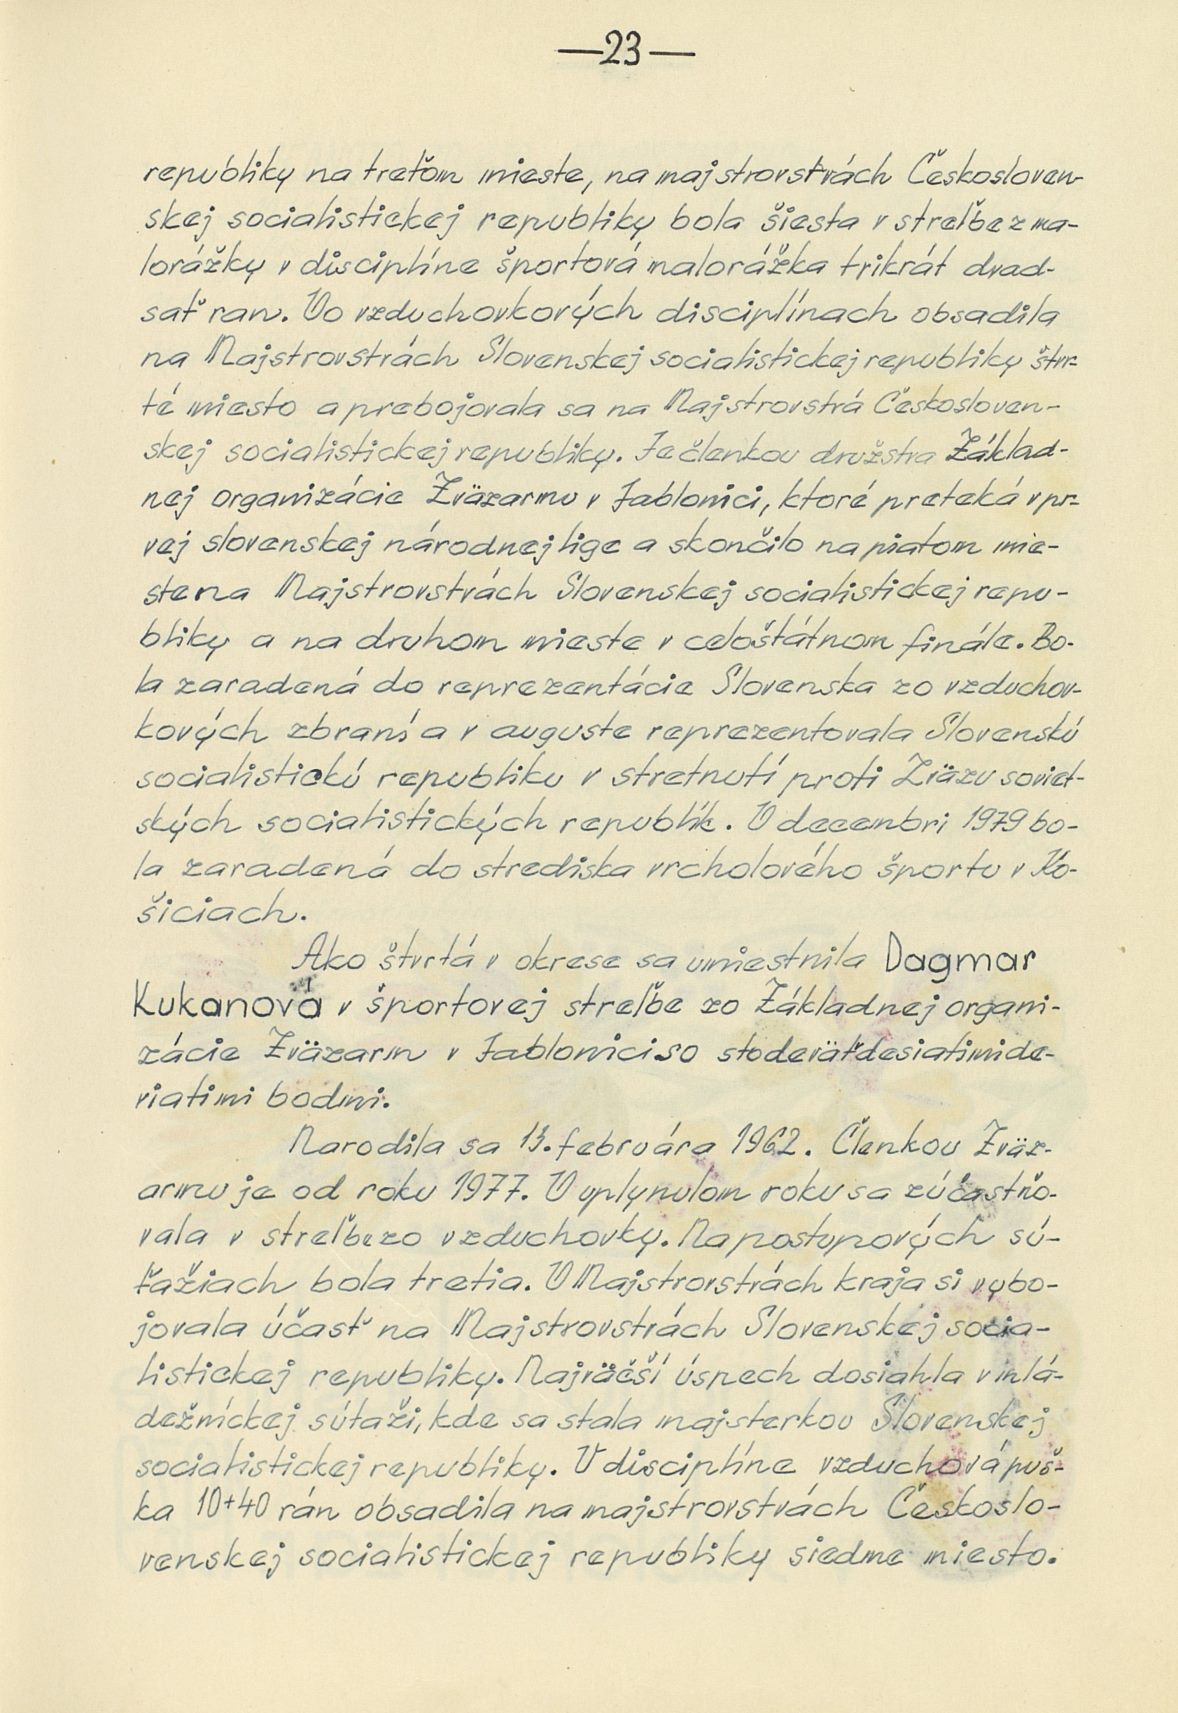 —23—
republiky na treťom mieste, na majstrovstvách Českosloven-
skej socialistickej republiky bola šiesta v streľbe z ma-
lorážky v disciplíne športová malorážka trikrát dvad-
sať ran. Vo vzduchovkových disciplínach obsadila
na Majstrovstvách Slovenskej socialistickej republiky štvr-
té miesto a prebojovala sa na Majstrovstvá Českosloven-
skej socialistickej republiky. Je členkou družstva Základ-
nej organizácie Zväzarmu v Jablonici, ktoré preteká v pr-
vej slovenskej národnej lige a skončilo na piatom mie-
ste na Majstrovstvách Slovenskej socialistickej repu-
bliky a na druhom mieste v celoštátnom finále. Bo-
la zaradená do reprezentácie Slovenska zo vzduchov-
kových zbraní a v auguste reprezentovala Slovenskú
socialistickú republiku v stretnutí proti Zväzu soviet-
ských socialistických republík. V decembri 1979 bo-
la zaradená do strediska vrcholového športu v Ko-
šiciach.
Ako štvrtá v okrese sa umiestnila Dagmar
Kukanová v športovej streľbe zo Základnej organi-
zácie Zväzarm v Jablonici so stodeväťdesiatimi de-
viatimi bodmi.
Narodila sa 13. februára 1962. Členkou Zväz-
armu je od roku 1977. V uplynulom roku sa zúčastňo-
vala v streľbe zo vzduchovky. Na postupových sú-
ťažiach bola tretia. V Majstrovstvách kraja si vybo-
jovala účasť na Majstrovstvách Slovenskej socia-
listickej republiky. Najväčší úspech dosiahla v mlá-
dežníckej súťaži, kde sa stala majsterkou Slovenskej
socialistickej republiky. V disciplíne vzduchová puš-
ka 10+40 rán obsadila na majstrovstvách Českoslo-
venskej socialistickej republiky siedme miesto.